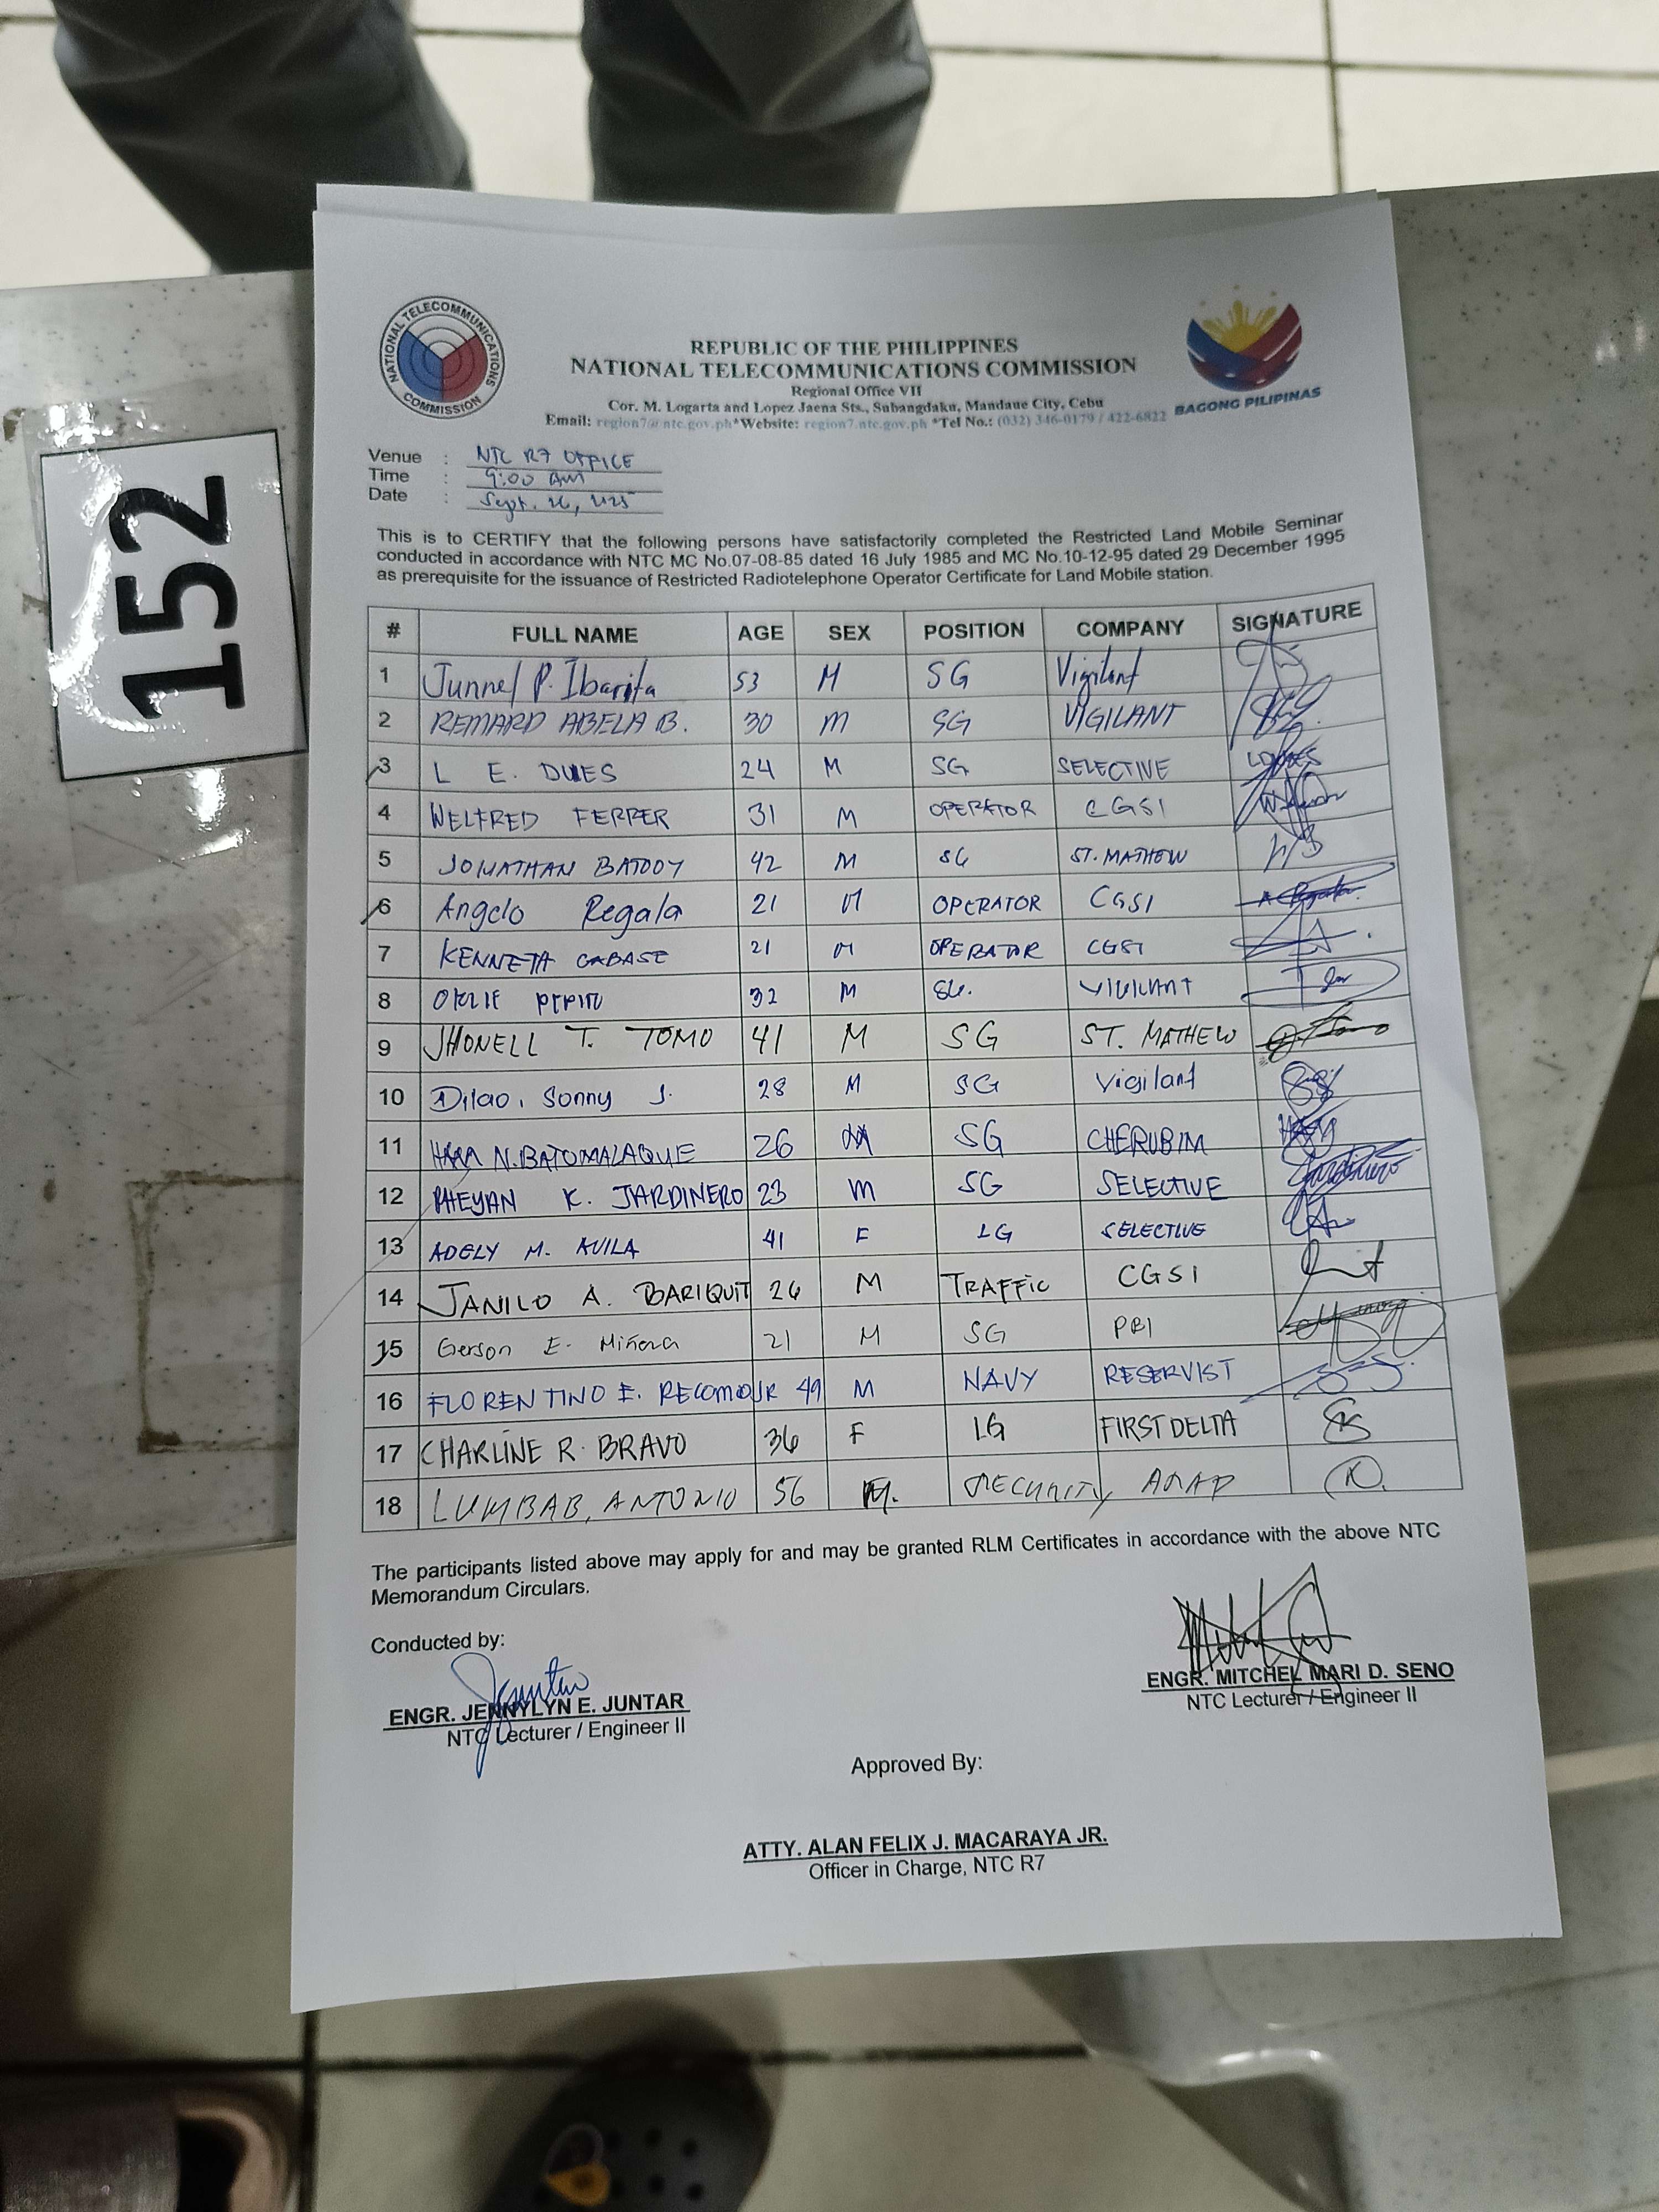 NATIONAL TELECOMMUNICATIONS COMMISSION
REPUBLIC OF THE PHILIPPINES
NATIONAL TELECOMMUNICATIONS COMMISSION
Regional Office VII
Cor. M. Logarta and Lopez Jaena Sts., Subangdaku, Mandaue City, Cebu
Email: region7@ntc.gov.ph*Website: region7.ntc.gov.ph *Tel No.: (032) 346-0179 / 422-6822
BAGONG PILIPINAS
152
Venue : NTC R7 OFFICE
Time : 9:00 AM
Date : Sept. 26, 2025
This is to CERTIFY that the following persons have satisfactorily completed the Restricted Land Mobile Seminar
conducted in accordance with NTC MC No.07-08-85 dated 16 July 1985 and MC No.10-12-95 dated 29 December 1995
as prerequisite for the issuance of Restricted Radiotelephone Operator Certificate for Land Mobile station.
# FULL NAME AGE SEX POSITION COMPANY SIGNATURE
1 Junnel P. Ibarita 53 M SG Vigilant
2 REMARD ABELA B. 30 M SG VIGILANT
3 L E. 24 M SG SELECTIVE
4 WELFRED FERRER 31 M OPERATOR CGSI
5 JONATHAN 42 M SG ST. MATHEW
6 Angelo Regala 21 M OPERATOR CGSI
7 KENNETH CABASE 21 M OPERATOR CGSI
8 PEPITO 32 M SG. VIGILANT
9 JHONELL T. TOMO 41 M SG ST. MATHEW
10 Dilao, Sonny J. 28 M SG Vigilant
11 N. BATOMALAQUE 26 M SG CHERUBIM
12 RHEYAN K. JARDINERO 23 M SG SELECTIVE
13 ADELY M. AVILA 41 F LG SELECTIVE
14 JANILO A. BARIQUIT 26 M TRAFFIC CGSI
15 Gerson E. Miñoza 21 M SG PBI
16 FLORENTINO E. RECOMO JR 49 M NAVY RESERVIST
17 CHARLINE R. BRAVO 36 F LG FIRST DELTA
18 LUMBAB, ANTONIO 56 M. SECURITY ANAP
The participants listed above may apply for and may be granted RLM Certificates in accordance with the above NTC
Memorandum Circulars.
Conducted by:
ENGR. JENNYLYN E. JUNTAR
NTC Lecturer / Engineer II
ENGR. MITCHEL MARI D. SENO
NTC Lecturer / Engineer II
Approved By:
ATTY. ALAN FELIX J. MACARAYA JR.
Officer in Charge, NTC R7